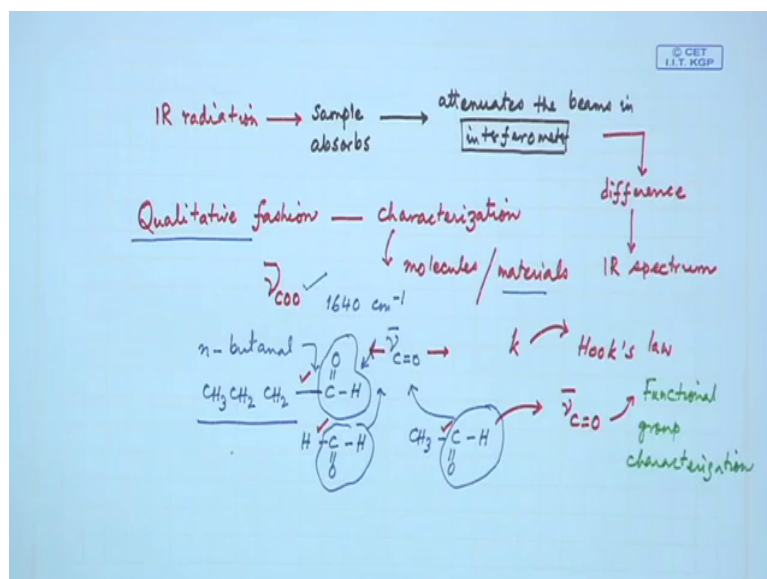 © CET
I.I.T. KGP
IR radiation → sample absorbs → attenuates the beams in interferometer
difference
IR spectrum
Qualitative fashion — characterization
molecules / materials
ν̄COO ✓ 1640 cm⁻¹
n-butanal
ν̄C=O
k → Hook's law
O
CH₃CH₂CH₂ — C – H
H – C – H
O
CH₃ – C – H
O
ν̄C=O
Functional
group
characterization